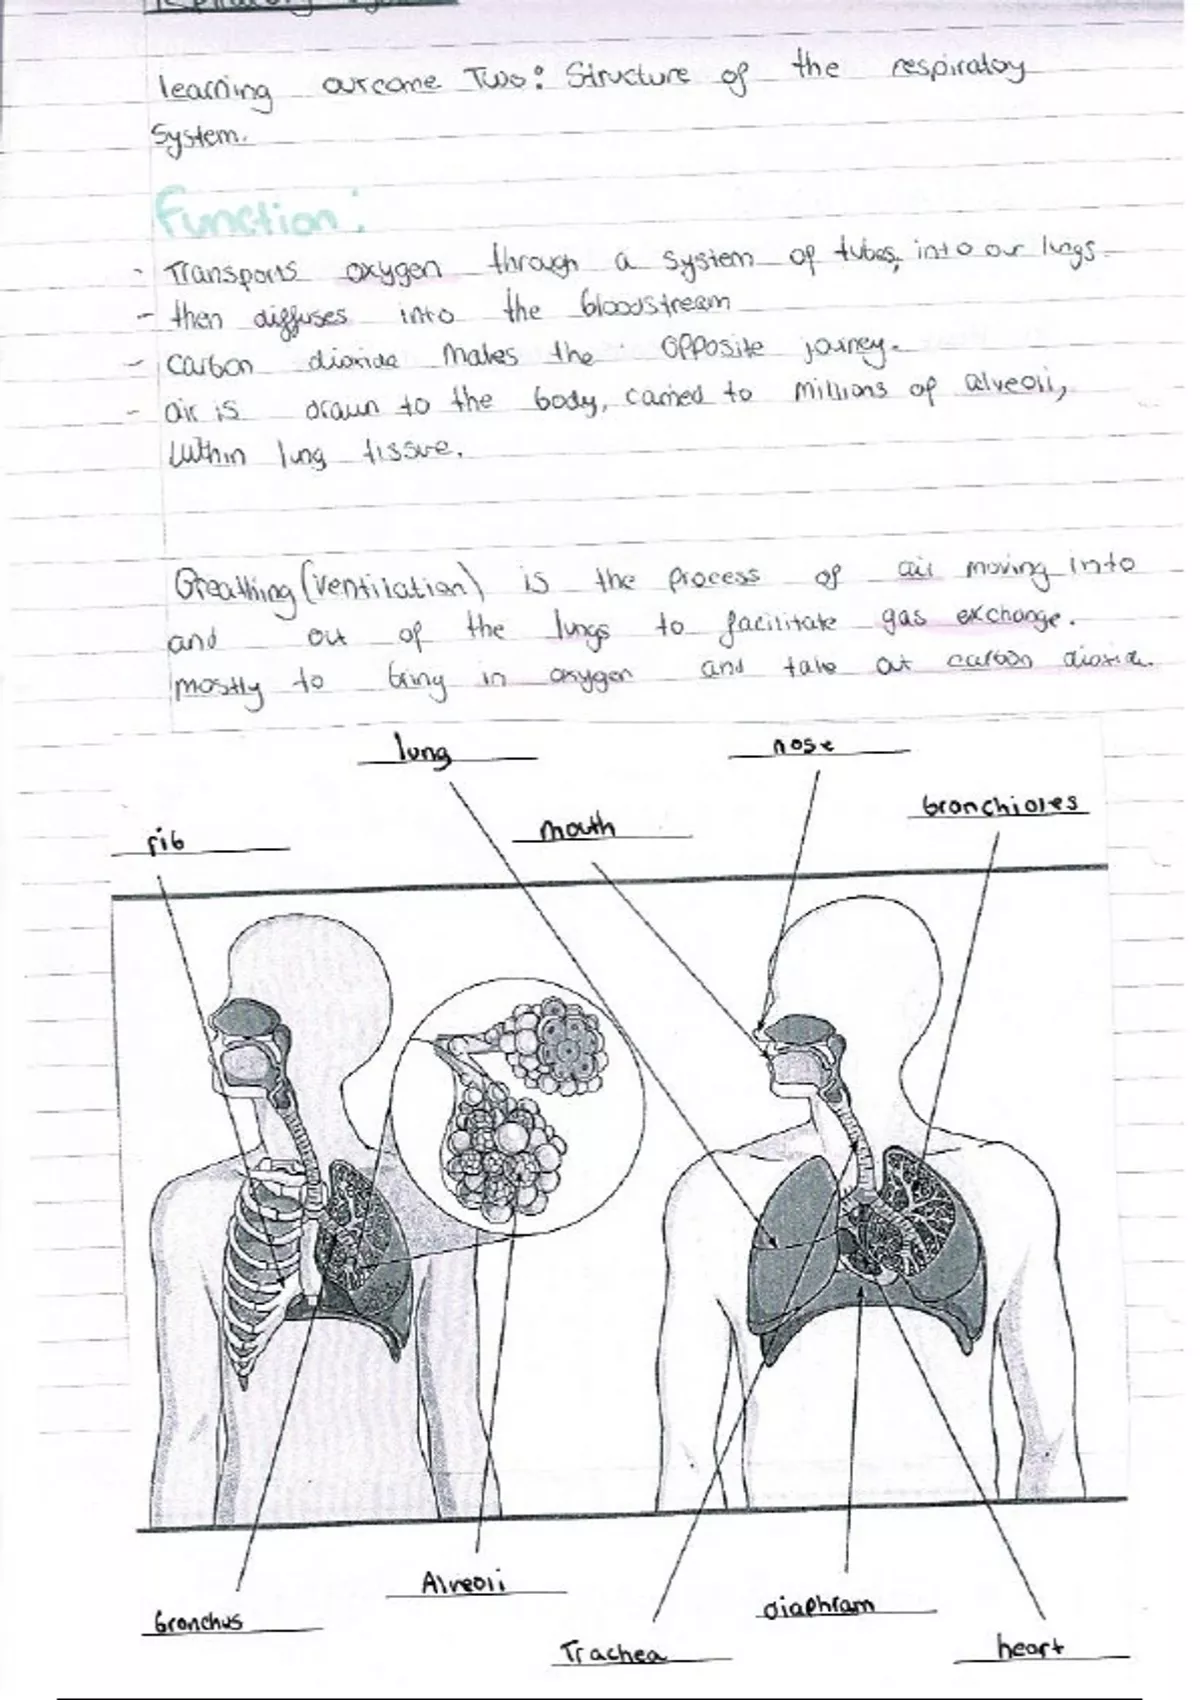 learning outcome Two: Structure of the respiratory
System.
Function:
- Transports oxygen through a system of tubes, into our lungs
- then diffuses into the bloodstream
- carbon dioxide makes the opposite journey.
- air is drawn to the body, carried to millions of alveoli,
within lung tissue.
Breathing (ventilation) is the process of air moving into
and out of the lungs to facilitate gas exchange.
mostly to bring in oxygen and take out carbon dioxide.
lung
nose
bronchioles
mouth
rib
Alveoli
diaphram
bronchus
Trachea
heart